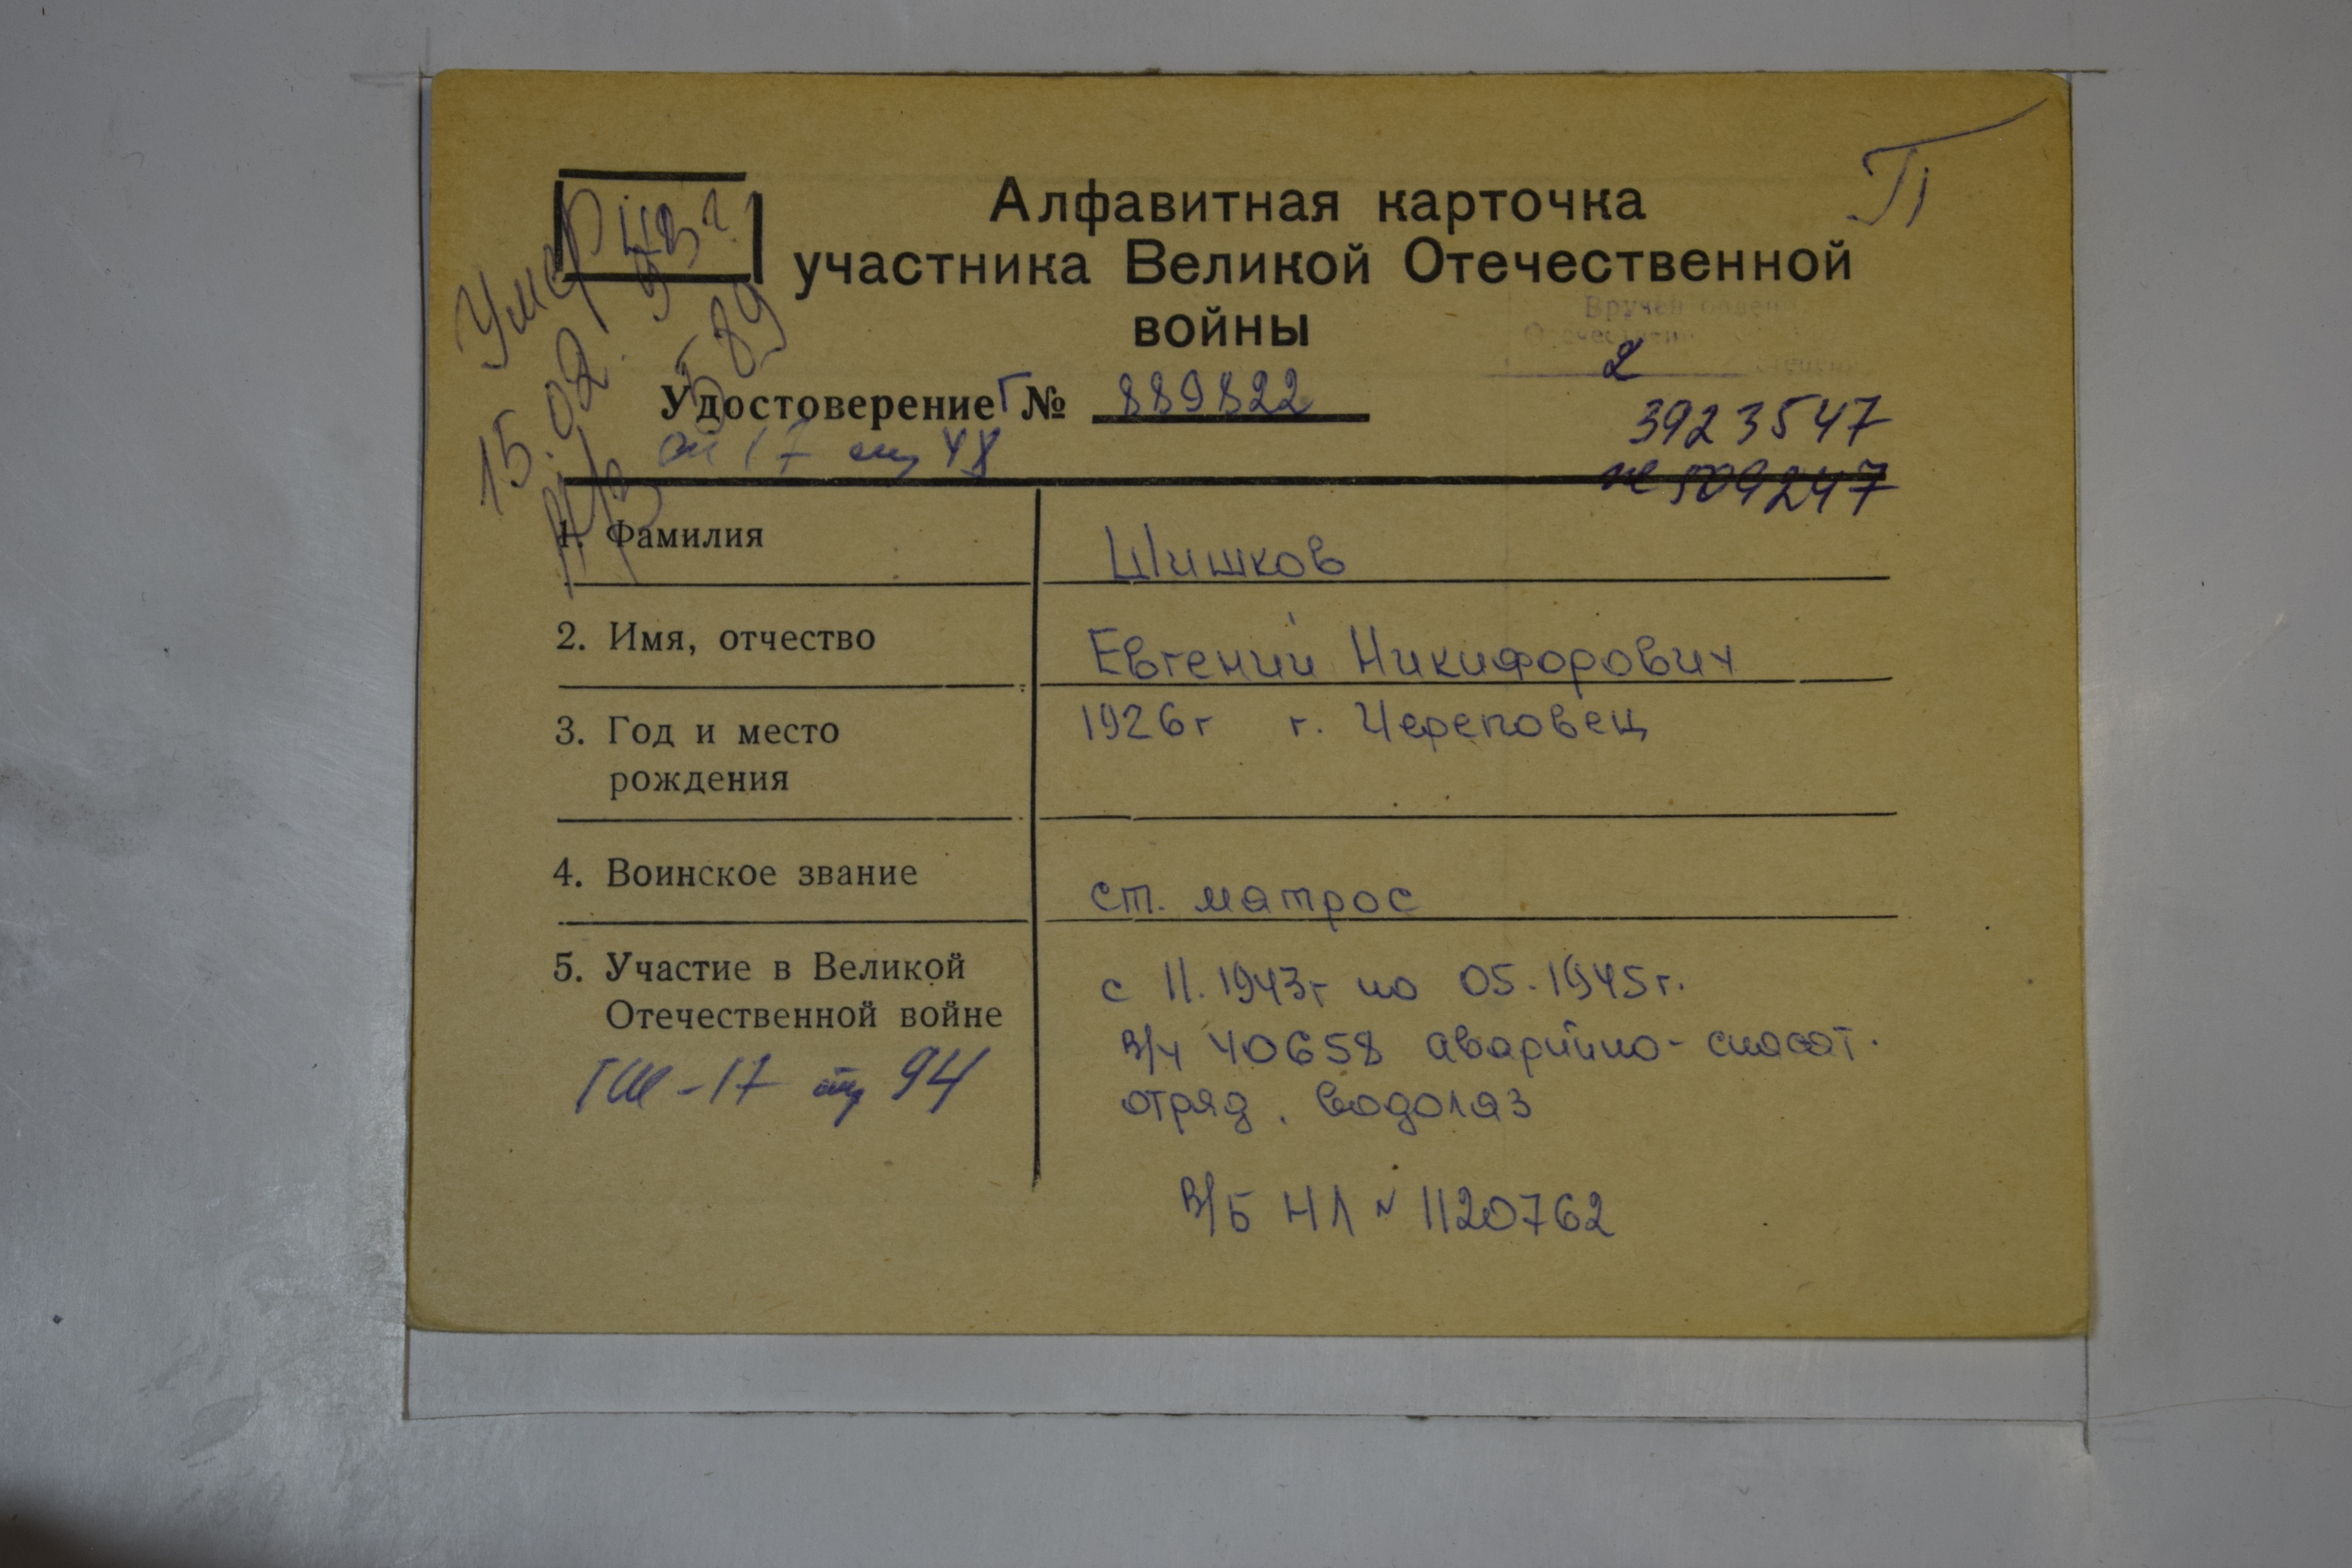 П
Алфавитная карточка
участника Великой Отечественной
войны
Умер
15.02.93г.
589
Вручен орден
2
Удостоверение Г № 889822
3923547
№ 509247
1. Фамилия
Шишков
2. Имя, отчество
Евгений Никифорович
3. Год и место
рождения
1926г г. Череповец
4. Воинское звание
ст. матрос
5. Участие в Великой
Отечественной войне
с 11.1943г по 05.1945г.
в/ч 40658 аварийно-спасат.
отряд. водолаз
94
в/б НЛ № 1120762